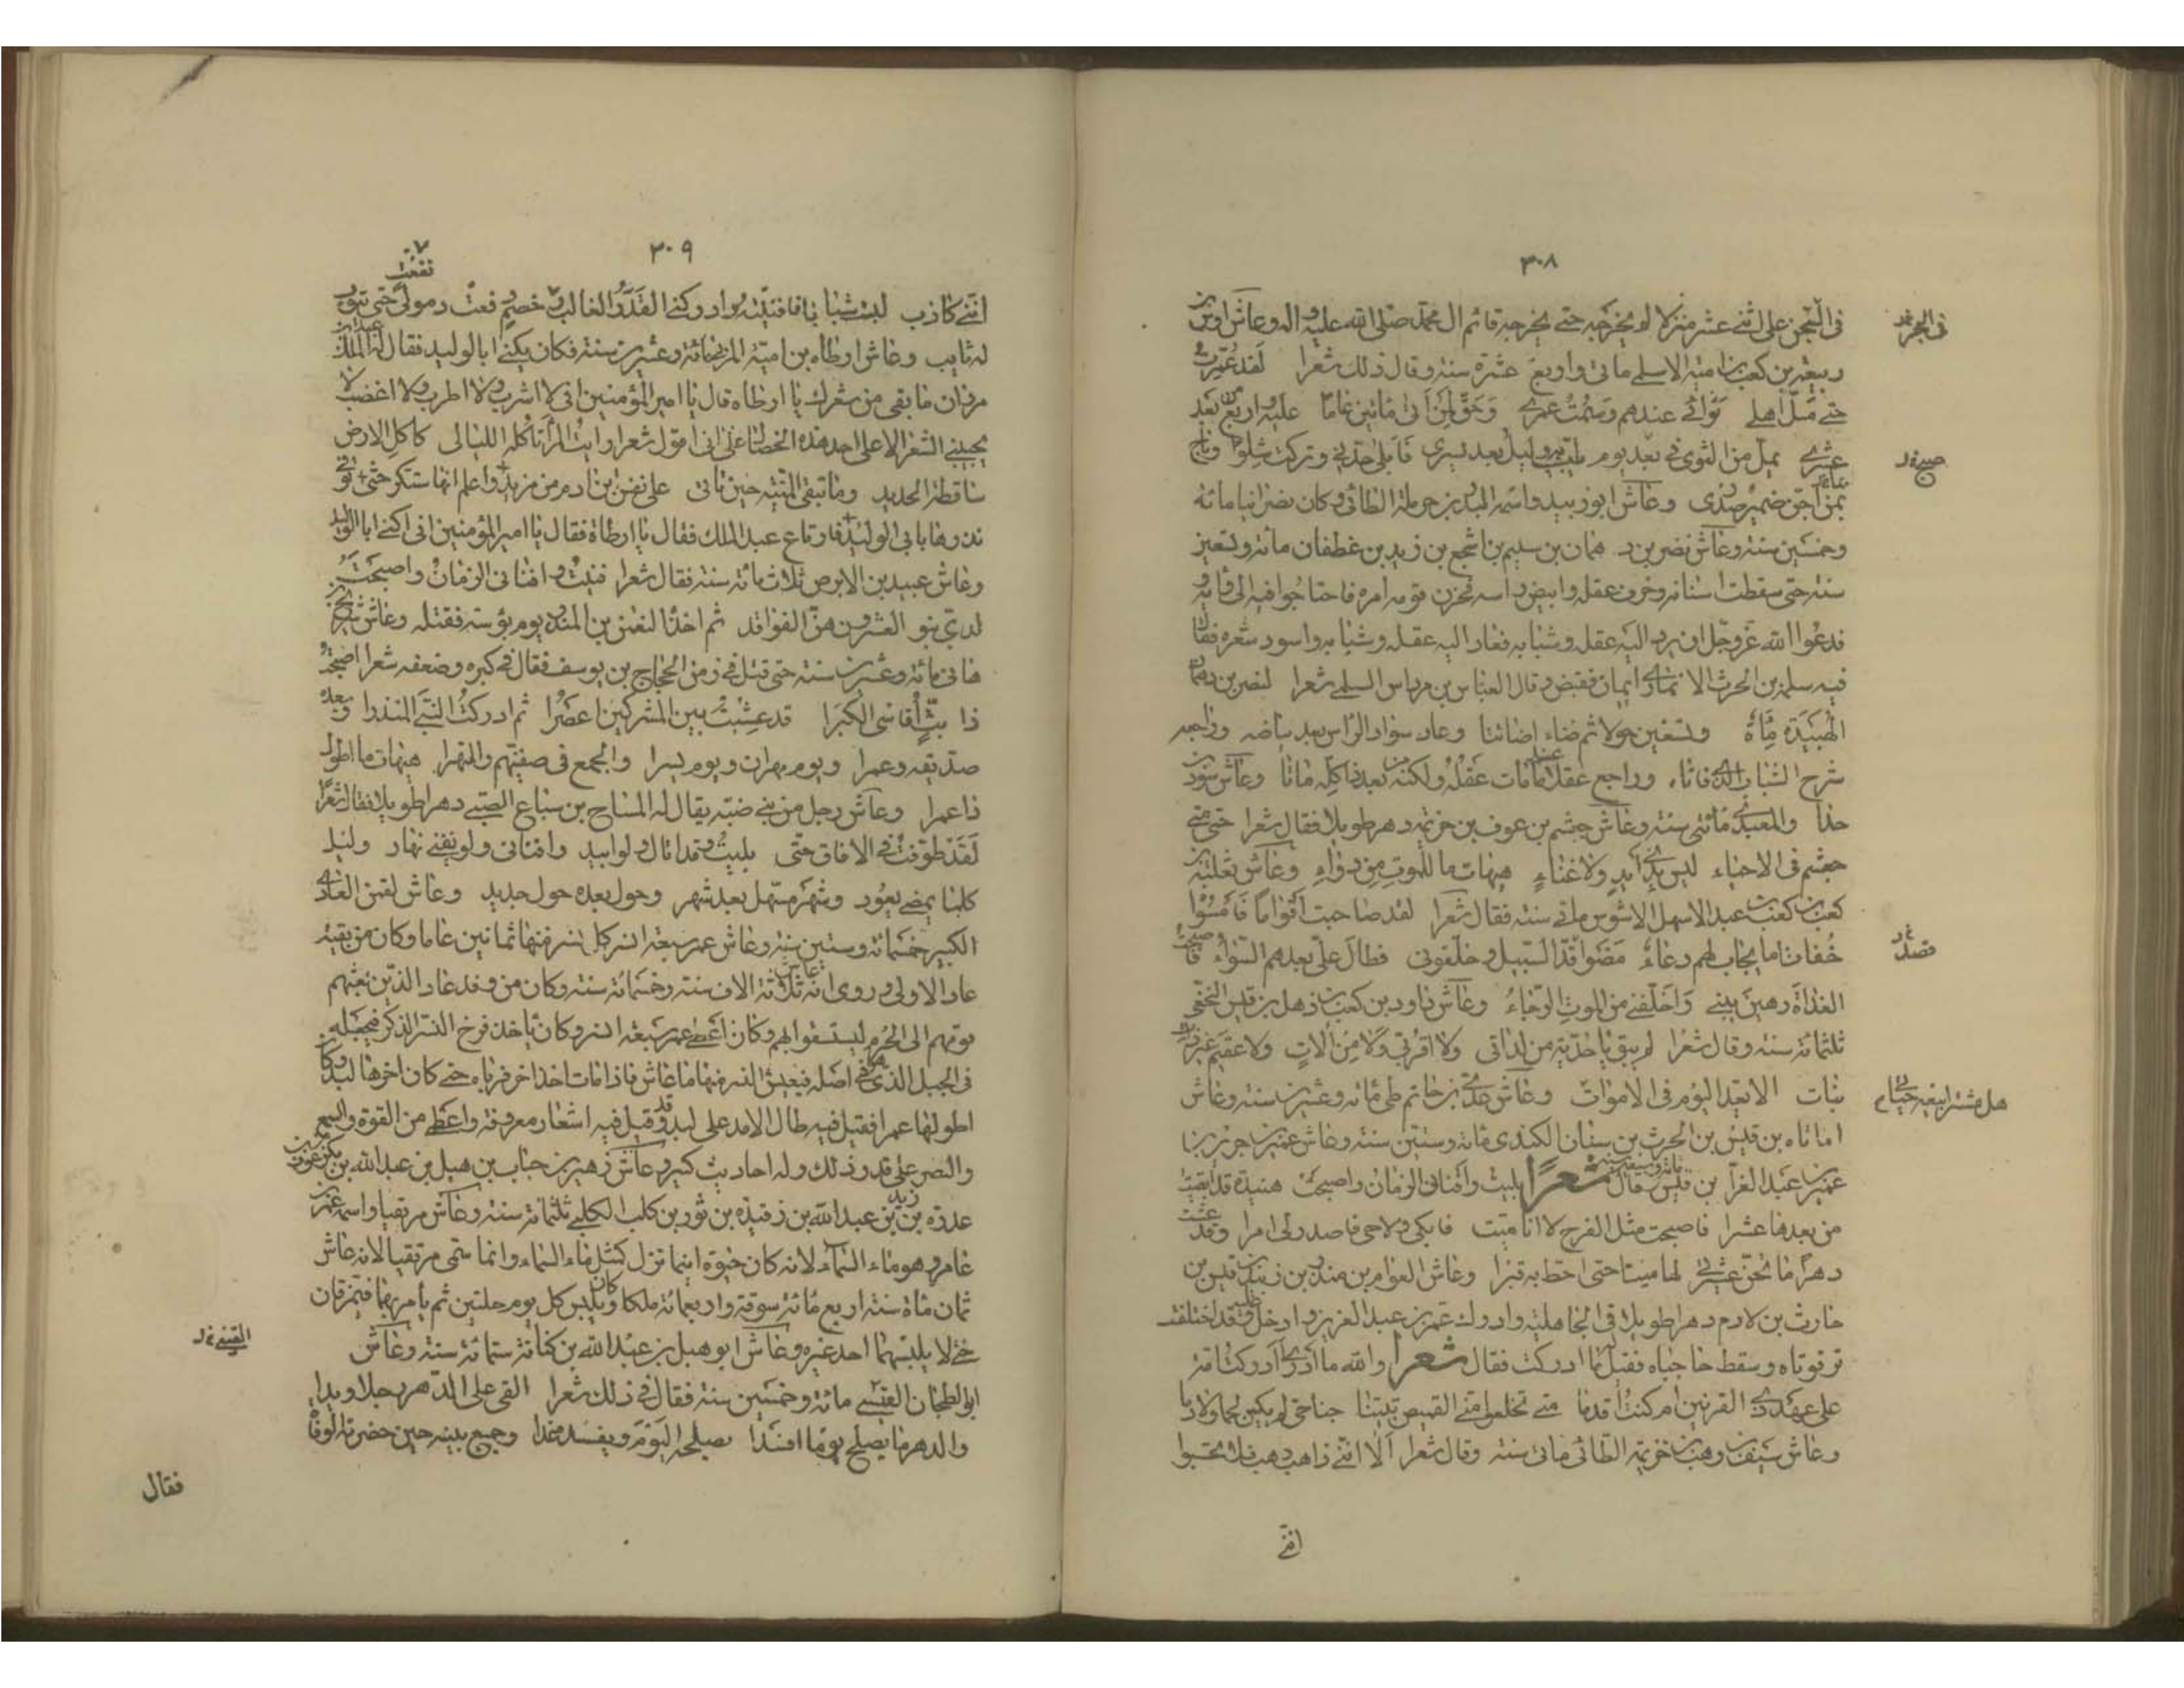 ٣٠٨
في السجن على اثنى عشر منزلا لم يخرجه حتى يخرجه قائم ال محمد صلى الله عليه واله وعاش اوس بن
في الحجر خ د
ربيعة بن كعب بن امية الاسلمى مائتى واربع عشرة سنة وقال في ذلك شعرا لقد عمرت
حتى مل اهلى ثوائى عندهم وسئمت عمرى وحق لمن اتى مائتين عاما عليه واربع من بعد
عشرى يمل من الثوى في بعد يوم وليل بعد يسرى فابلى جدتى وتركت شلوا وباح
صبح خ د
بما اجن ضمير صدرى وعاش ابو زبيد واسمه المنذر بن حرملة الطائى وكان نصرانيا مائة
وخمسين سنة وعاش نصر بن دهمان بن سليم بن اشجع بن زيد بن غطفان مائة وتسعين
سنة حتى سقطت اسنانه وخرف عقله وابيض راسه فحزن قومه امره فاحتاجوا فيه الى رأيه
فدعوا الله عزوجل ان يرد اليه عقله وشبابه فعاد اليه عقله وشبابه واسود شعره فقال
فيه سلمة بن الحرث الانمارى ويقال العباس بن مرداس السلمى شعرا لنصر بن دهمان
الهنيدة مأة وتسعين حولا ثم ضاء وعاد سواد الراس بعد بياضه وراجعه
شرخ الشباب الذى فاتا وراجع عقلا عند ما فات عقله ولكنه من بعد ذا كله ماتا وعاش سويد بن
حذا والعبدى مائتى سنة وعاش جشم بن عوف بن خزيمة دهرا طويلا فقال شعرا حتى متى
جشم في الاحياء ليس بذى ايد ولا غناء هيهات ما للموت من دواء وعاش ثعلبة بن
كعب بن عبد الاشهل الاشوس مائتى سنة فقال شعرا لقد صاحبت اقواما فامسوا
خفاتا ما يجاب لهم دعاء مضوا قصد السبيل وخلفونى فطال على بعدهم الثواء فاصبحت
قصد خ د
الغداة رهين بيتى واخلفنى من الموت الرجاء وعاش داود بن كعب بن ذهل بن قيس النخعى
ثلثمائة سنة وقال شعرا لم يبق يا خدية من لداتى ولا من الات ولا عقيم غير ذى
بنات الا يعد اليوم في الاموات وعاش عدى بن حاتم طى مائة وعشرين سنة وعاش
هل مشتر ابيعه حياتى
اماناه بن قيس بن الحرث بن سنان الكندى مائة وستين سنة وعاش عمير بن
عمير بن عبد العزا بن قيس مائة وسبعين سنة فقال شعرا بليت وافنانى الزمان واصبحت هنيدة قد ابقيت
من بعدها عشرا فاصبحت مثل الفرخ لا انا ميت فابكى ولا حى فاصدر لى امرا وقد عشت
دهرا ما تجن عشيرتى لها ميتا حتى اخط به قبرا وعاش العوام بن منذر بن زبيد بن قيس بن
حارث بن لام دهرا طويلا في الجاهلية وادرك عمر بن عبد العزيز وادخل عليه وقد اختلفت
ترقوتاه وسقط حاجباه فقيل له ما ادركت فقال شعرا والله ما ادرى ادركت امة
على عهد ذى القرنين ام كنت اقدما متى تخلعوا منى القميص تبينا جناجن لم يكسين لحما ولا دما
وعاش سيف بن وهب بن خزيمة الطائى مائتى سنة وقال شعرا الا اننى ذاهب فلا تحسبوا
اننى
٣٠٩
نفعت
اننى كاذب لبست شبابا فافنيته وادركنى القدر الغالب وخصم دفعت ومولى حتى يثوب
له ثايب وعاش ارطاة بن امية المزنى مائة وعشرين سنة فكان يكنى ابا الوليد فقال له عبد الملك بن
مروان ما بقى من شعرك يا ارطاة قال يا امير المؤمنين انى لا اشرب ولا اطرب ولا اغضب ولا
يجيئنى الشعر الا على احد هذه الخصال على انى اقول شعرا رايت المرأ تاكله الليالى كاكل الارض
ساقطة الحديد وما تبقى المنية حين تاتى على نفس ابن ادم من مزيد واعلم انها ستكر حتى توفى
نذرها بابى الوليد فارتاع عبد الملك فقال يا ارطاة فقال يا امير المؤمنين انى اكنى ابا الوليد
وعاش عبيد بن الابرص ثلاث مائة سنة فقال شعرا فنيت وافنانى الزمان واصبحت
لدى بنو العشر وهن الفراقد ثم اخذه النعمن بن المنذر يوم بؤسه فقتله وعاش شريح بن
هانى مائة وعشرين سنة حتى قتل في زمن الحجاج بن يوسف فقال في كبره وضعفه شعرا اصبحت
ذا بث اقاسى الكبرا قد عشت بين المشركين اعصرا ثم ادركت النبى المنذرا وبعده
صديقه وعمرا ويوم مهران ويوم تسترا والجمع في صفينهم والنهرا هيهات ما اطول
ذا عمرا وعاش رجل من بنى ضبة يقال له المسناح بن سباع الضبى دهرا طويلا فقال شعرا
لقد طوفت في الافاق حتى بليت وقد انى لى لو ابيد وافنانى ولو يفنى نهار وليل
كلما يمضى يعود وشهر مستهل بعد شهر وحول بعده حول جديد وعاش لقمن العادى
الكبير خمسمائة وستين سنة وعاش عمر سبعة انسر كل نسر منها ثمانين عاما وكان من بقية
عاد الاولى وروى انه عاش ثلاثة الاف سنة وخمسمائة سنة وكان من وفد عاد الذين بعثهم
قومهم الى الحرم ليستسقوا لهم وكان اعطى عمر سبعة انسر وكان ياخذ فرخ النسر الذكر فيجعله
في الجبل الذى هو في اصله فيعيش النسر منها ما عاش فاذا مات اخذ اخر فرباه حتى كان اخرها لبد وكان
اطولها عمرا فقيل فيه طال الامد على لبد وقد قيل فيه اشعار معروفة واعطى من القوة والسمع
والبصر على قدر ذلك وله احاديث كثيرة وعاش زهير بن جناب بن هبل بن عبد الله بن بكر بن عوف بن
عذرة بن زيد بن عبد الله بن رفيدة بن ثور بن كلب الكلبى ثلثمائة سنة وعاش مزيقيا واسمه عمر بن
عامر وهو ماء السماء لانه كان حيوة اينما نزل كمثل ماء السماء وانما سمى مزيقيا لانه عاش
ثمان مأة سنة اربع مائة سوقة واربعمائة ملكا وكان يلبس كل يوم حلتين ثم يأمر بهما فتمزقان
حتى لا يلبسهما احد غيره وعاش ابو هبل بن عبد الله بن كنانة ستمائة سنة وعاش
القينى خ د
ابو الطمحان القيسى مائة وخمسين سنة فقال في ذلك شعرا القى على الدهر رجلا ويدا
والدهر ما يصلح يوما افسدا يصلحه اليوم ويفسده غدا وجمع بنيه حين حضرته الوفاة
فقال